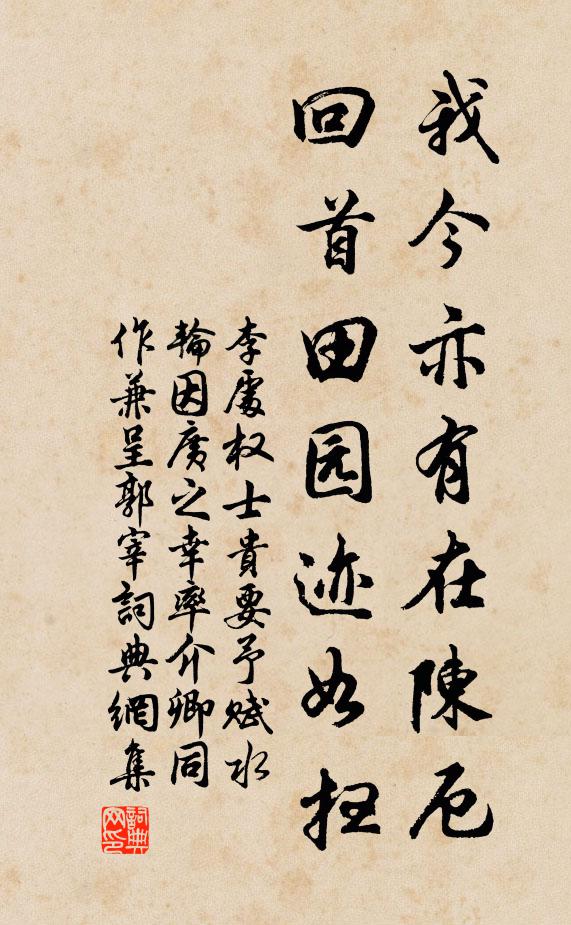 我今亦有在陳厄
回首田园迹如扫
李處权士貴要予賦水
輪因廣之幸率介卿同
作兼呈郭宰詞典網集
詞典
网印